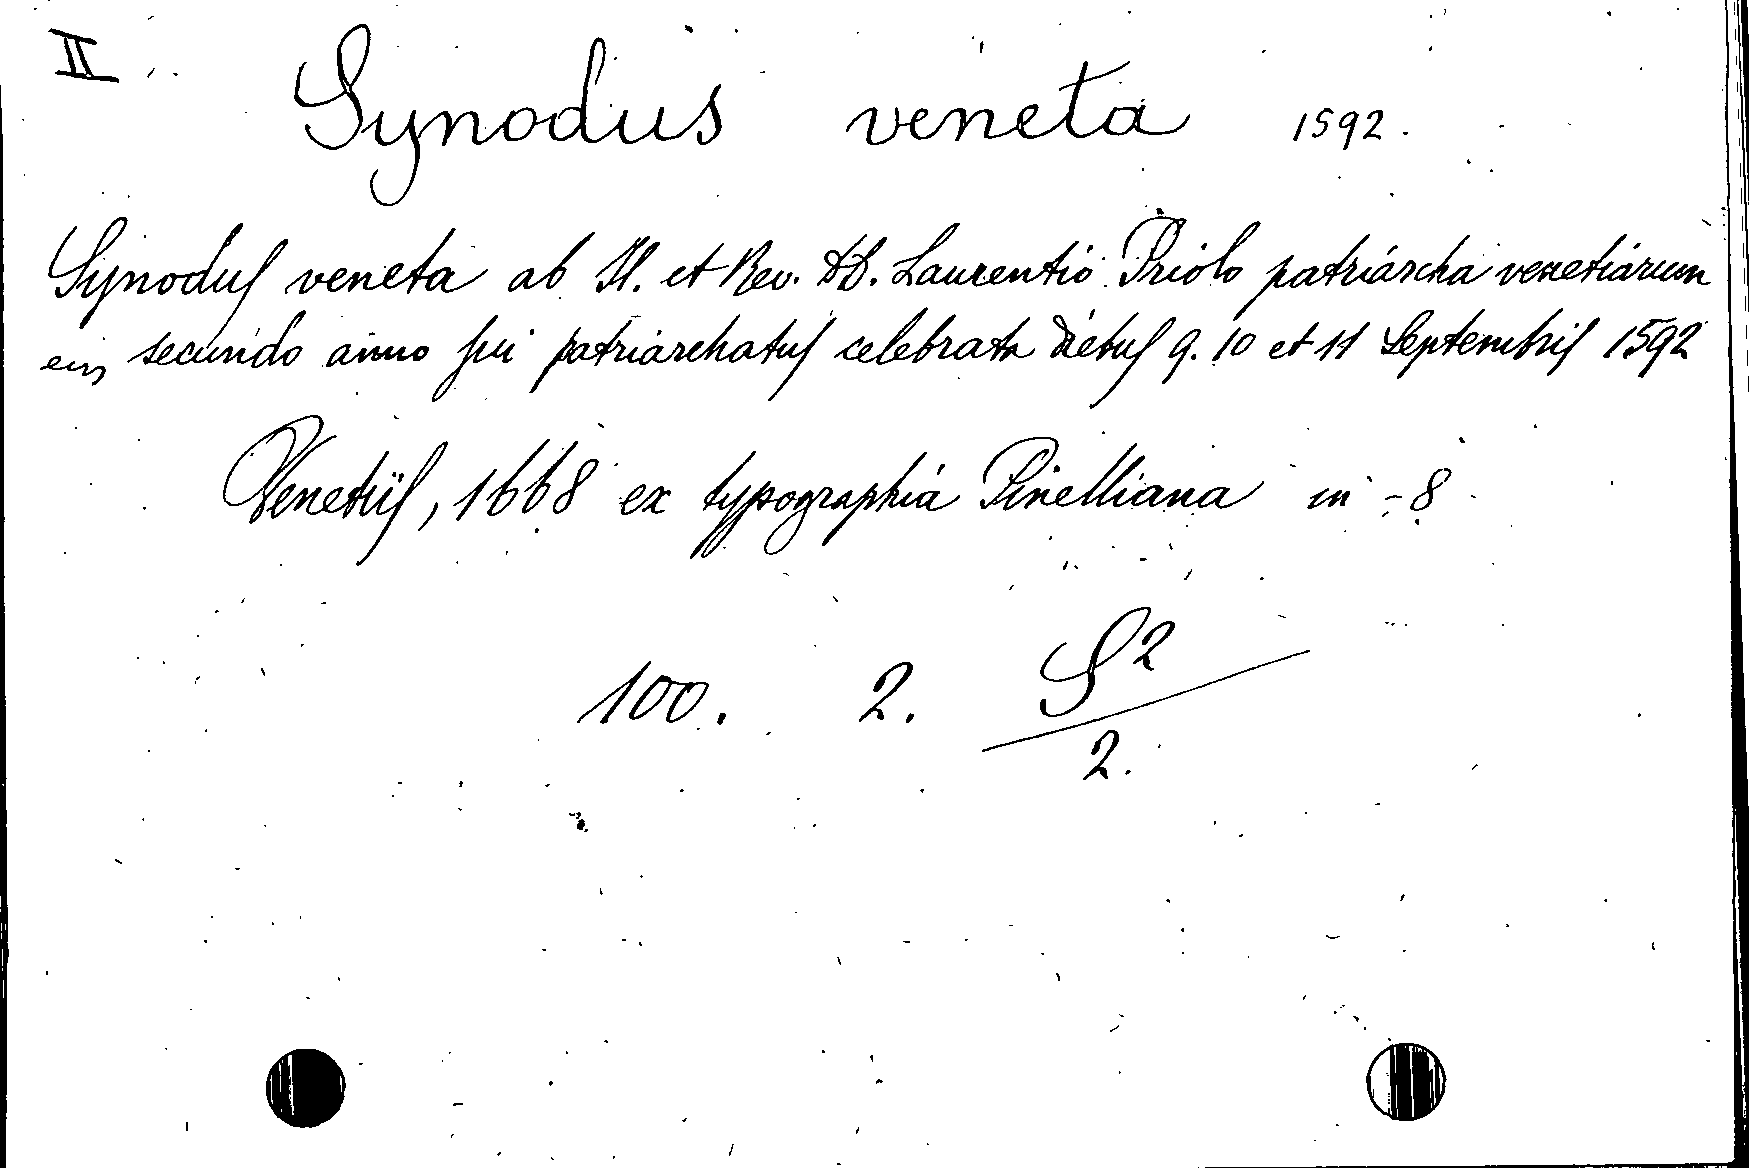 II
Synodus veneta 1592.
Synodus veneta ab Ill. et Rev. DD. Laurentio Priolo patriarcha venetiarum
secundo anno sui patriarchatus celebrata diebus 9. 10 et 11 Septembris 1592
Venetiis, 1668 ex typographia Pinelliana in -8
100. 2. S2
2.